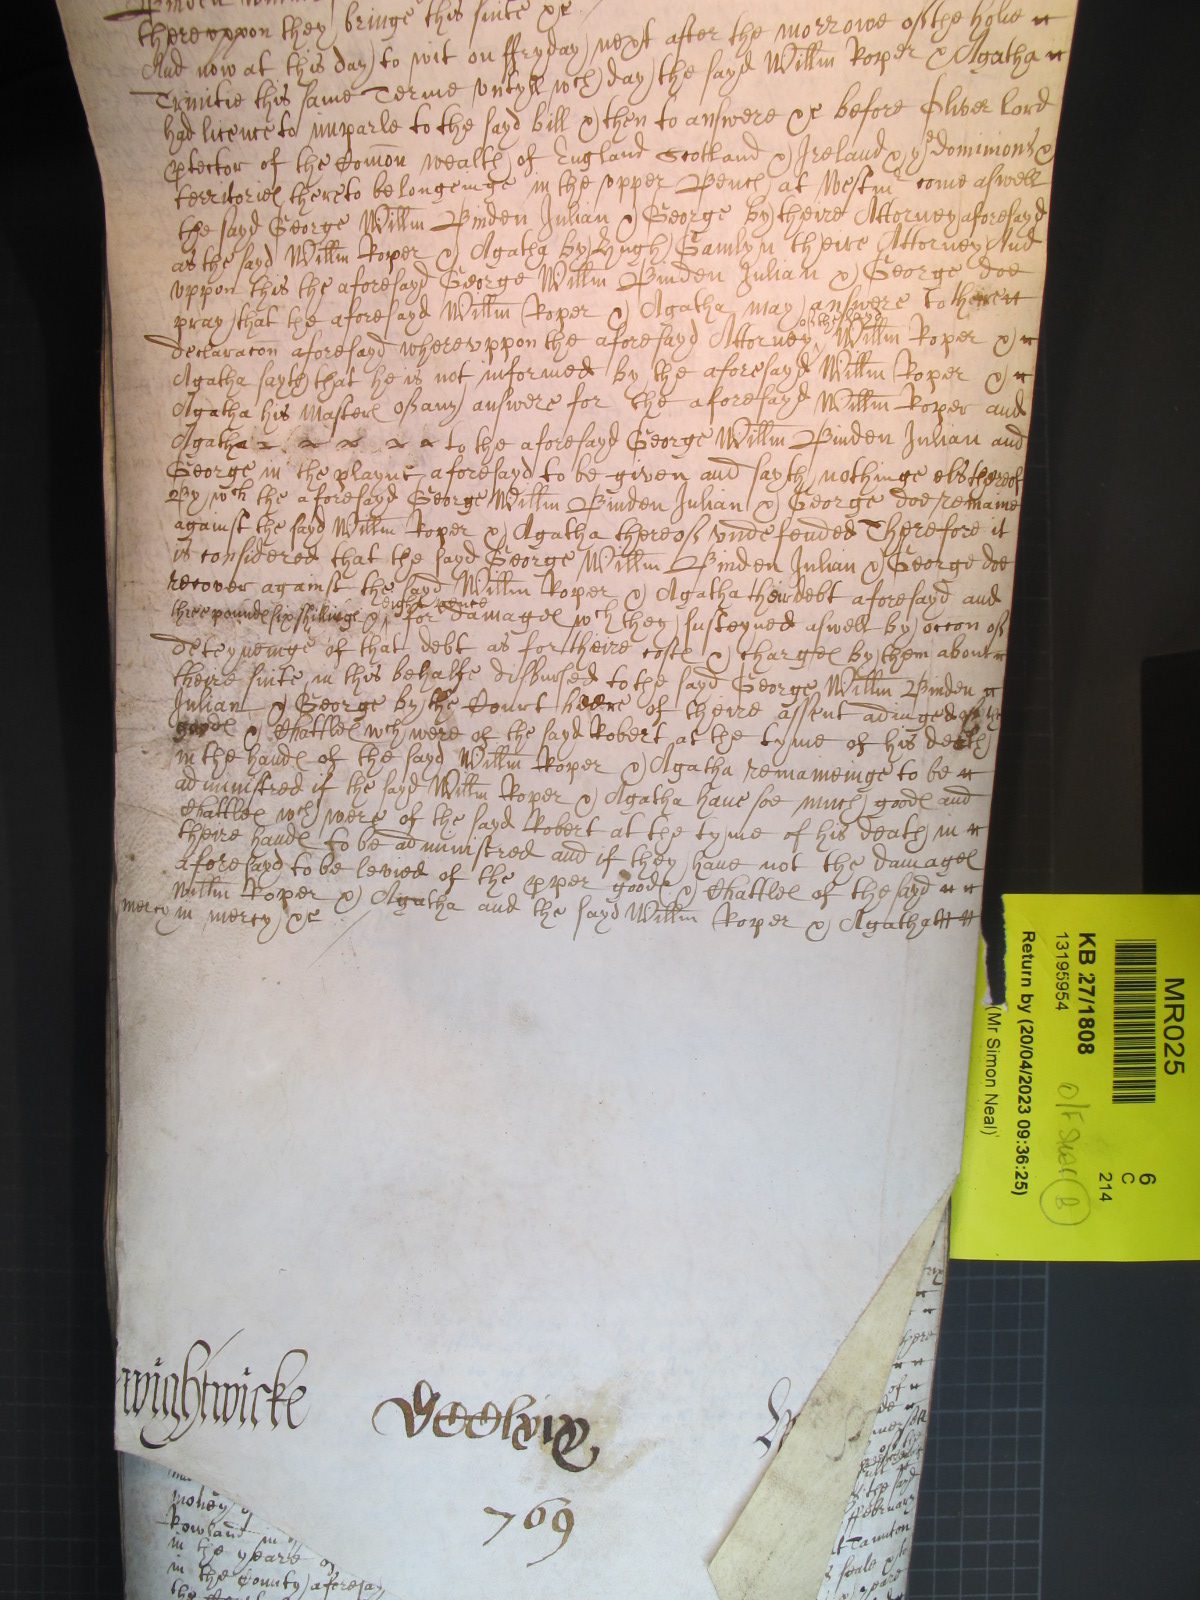 thereuppon they bringe this suite &c
And now at this day to wit on ffryday next after the morrowe of the Holie
Trinitie this same Terme untyll wch day the sayd Willm Roper & Agatha
had licence to imparle to the sayd bill & then to answere &c before Oliver Lord
ptector of the Comon wealth of England Scotland & Ireland & ye dominions &
territories thereto belongeinge in the upper Bench at Westmr come aswell
the sayd George Willm Binden Julian & George by theire Attorney aforesayd
as the sayd Willm Roper & Agatha by Hugh Gamlyn theire Attorney And
uppon this the aforesayd George Willm Binden Julian & George doe
pray that the aforesayd Willm Roper & Agatha may answere to there
declaracon aforesayd whereuppon the aforesayd Attorney of the sayd Willm Roper &
Agatha sayth that he is not informed by the aforesayd Willm Roper &
Agatha his Masters of any answere for the aforesayd Willm Roper and
Agatha to the aforesayd George Willm Binden Julian and
George in the playnt aforesayd to be given and sayth nothinge els thereof
By wch the aforesayd George Willm Binden Julian & George doe remaine
against the sayd Willm Roper & Agatha thereof undefended Therefore it
is considered that the sayd George Willm Binden Julian & George doe
recover against the sayd Willm Roper & Agatha their debt aforesayd and
three pounds six shillings & eight pence for damages wch they susteyned aswell by occon of
deteyneinge of that debt as for theire costs & charges by them about
theire suite in this behalfe disbursed to the sayd George Willm Binden
Julian & George by the Court heere of theire assent adiudged of ye
goods & Chattles wch were of the sayd Robert at the tyme of his death
in the hands of the sayd Willm Roper & Agatha remaineinge to be
administred if the sayd Willm Roper & Agatha have soe much goods and
Chattles wch were of the sayd Robert at the tyme of his death in
theire hands to be administred and if they have not the damages
aforesayd to be levied of the pper goods & Chattles of the sayd
Willm Roper & Agatha and the sayd Willm Roper & Agatha
mercy in mercy &c
MR025
KB 27/1808
13195954
Return by (20/04/2023 09:36:25)
(Mr Simon Neal)
6
C
214
B
Wightwicke
769
money
Rowland in
in the yeare
in the County aforesay
of
ffebruary
Taunton